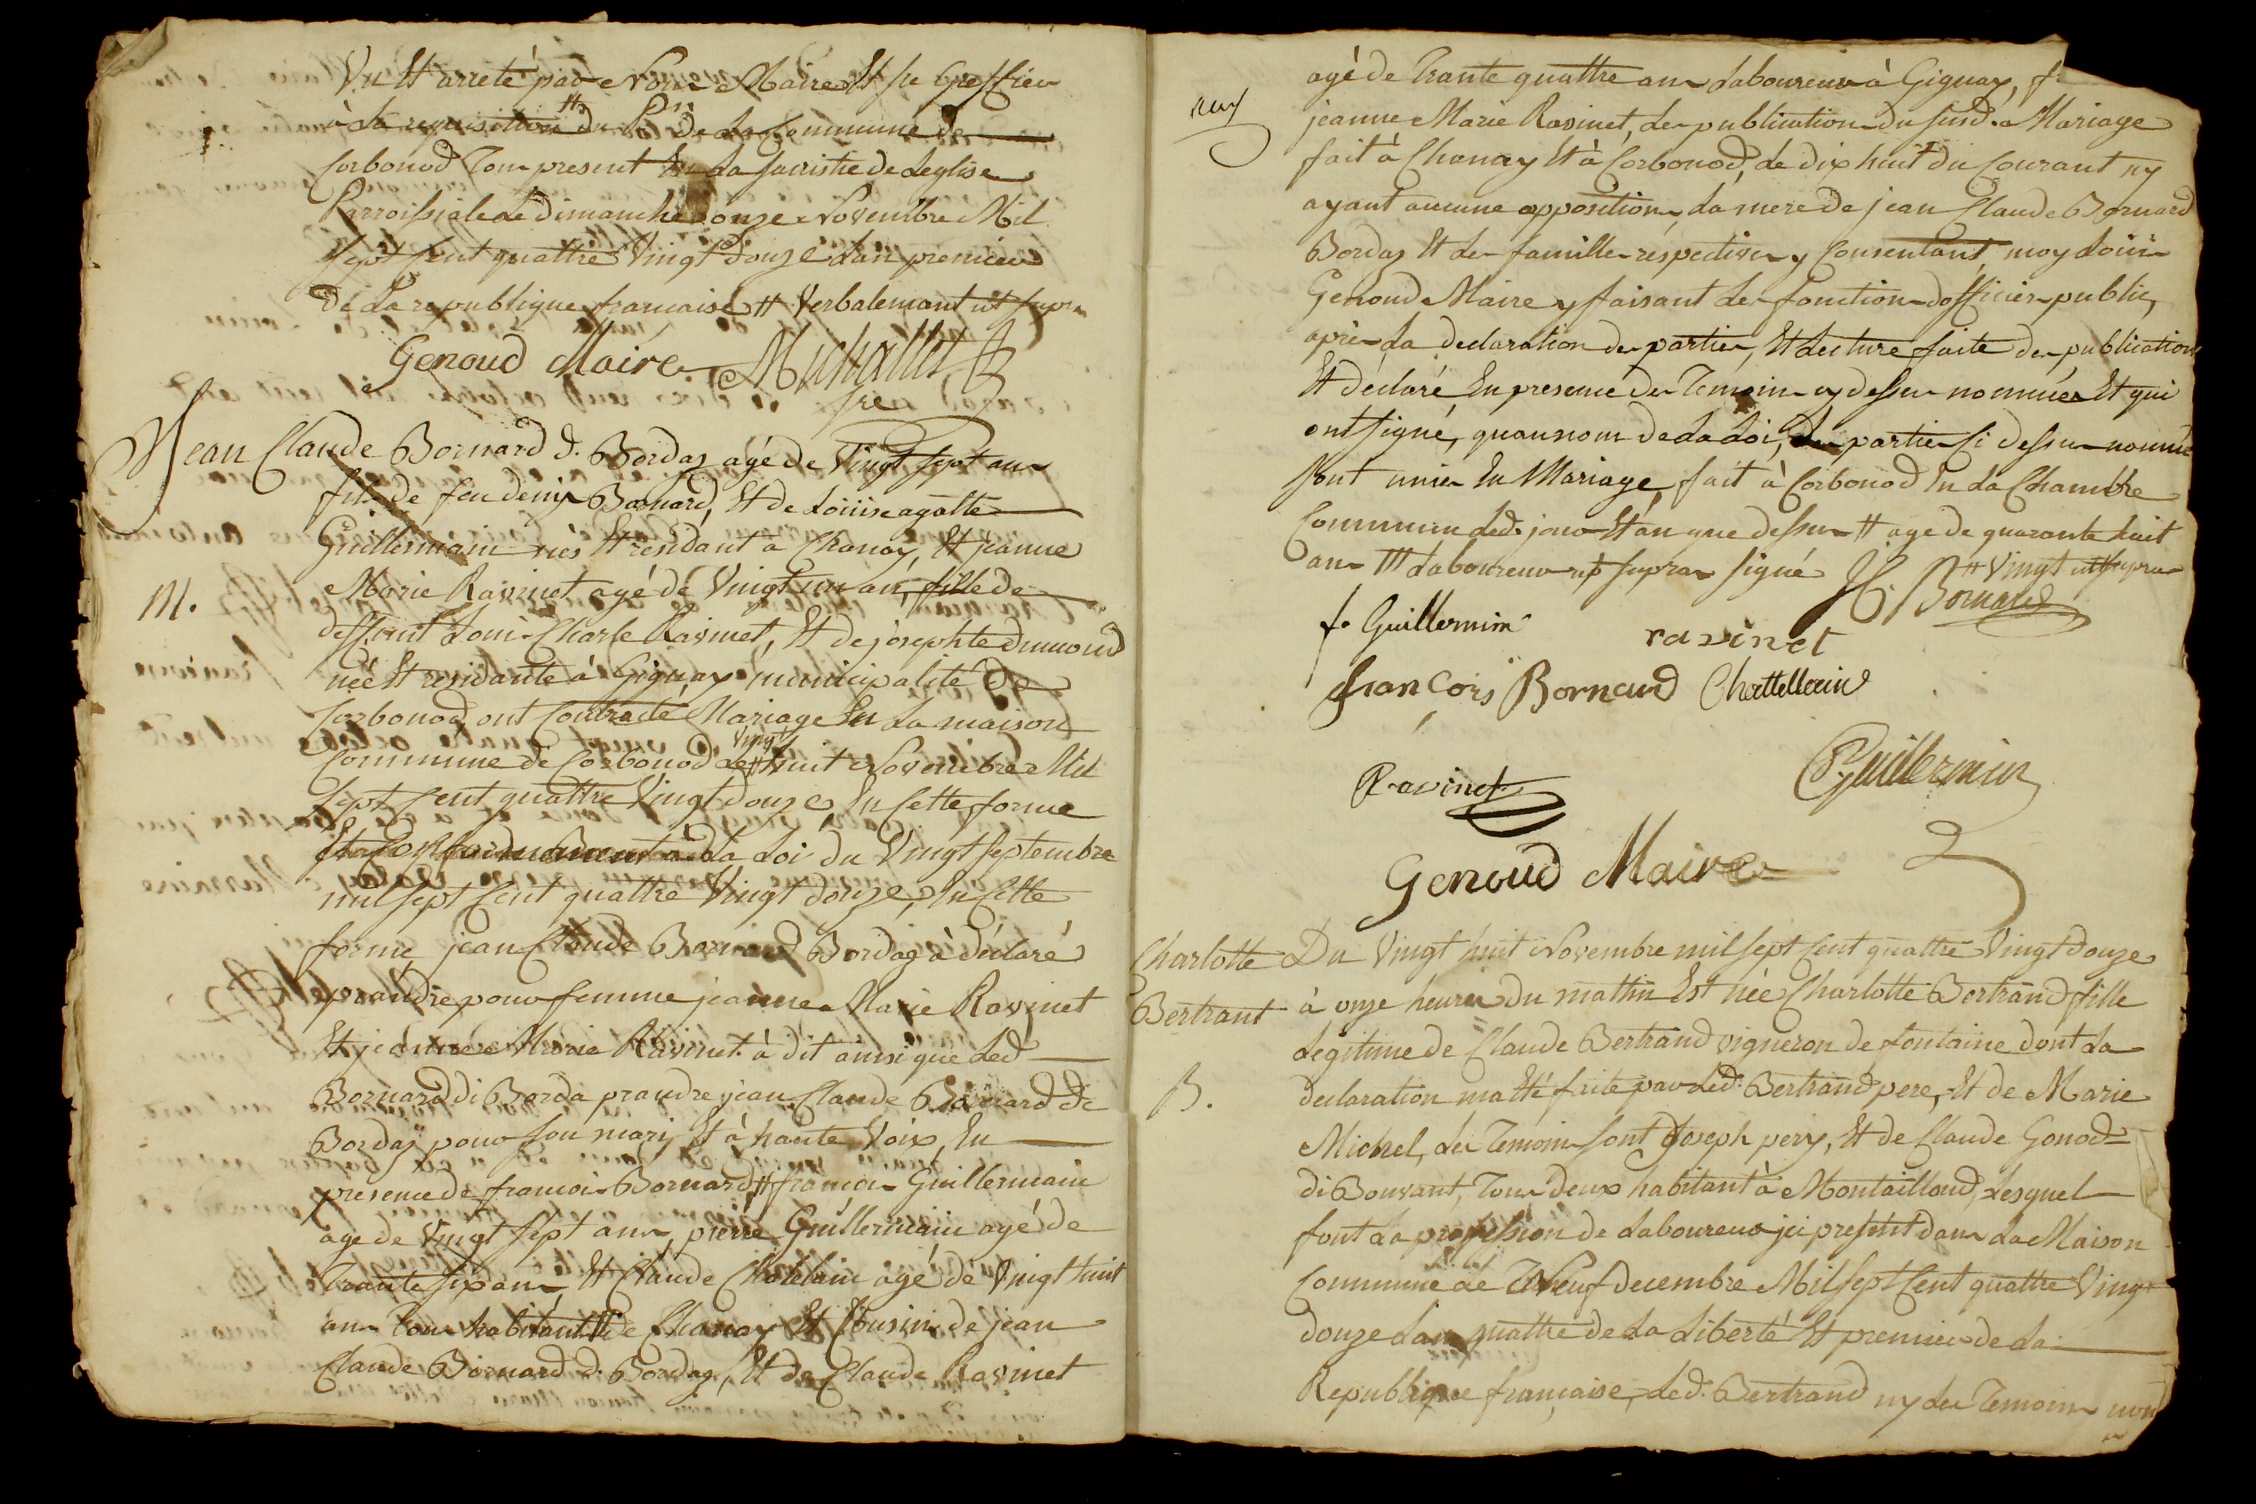 Vu Et arreté par Nous Maire Et se Greffier
à la requisition # du Pr de la Commune de
Corbonod Tous present En la sacristie de Leglise
Parroissiale le dimanche onze Novembre Mil
sept cent quattre Vingt douze Lan premier
de La republique francaise # Verbalemant ut supra
Genoud Maire Michallet
sre
Jean Claude Bornard d. Bordaz agé de Vingt sept ans
fils de feu denis Bornard, Et de Loüise agatte
Guillermain nés Et residant à Chanay, Et jeanne
M.
Marie Ravinet agé de Vingt un an, fille de
deffunt Louis Charle Ravinet, Et de josephte dumond
née Et residante à Gignay municipalité de
Corbonod, ont Contracté Mariage En La maison
Commune de Corbonod le # Vingt huit Novembre Mil
sept cent quattre Vingt douze, En Cette forme
Et Conformement à la Loi du Vingt septembre
mil sept Cent quattre Vingt douze, En Cette
forme jean Claude Bornard Bordaz à déclaré
prandre pour femme jeanne Marie Ravinet
Et jeanne Marie Ravinet à dit ainsi que led
Bornard di Borda prandre jean Claude Bornard di
Bordaz pour son mary Et à haute Voix, En
presence de francois Bornard # francois Guillermain
age de Vingt sept ans, pierre Guillermain agé de
Trante six ans, Et Claude Chatelain agé de Vingt huit
ans Tous habitant de Chanay Et Cousins de jean
Claude Bornard d. Bordaz, Et de Claude Ravinet
agé de Trante quattre ans Laboureur à Gignay, fr
jeanne Marie Ravinet, les publications du susd. Mariage
fait à Chanay Et à Corbonod, le dix huit du Courant ny
ayant aucune opposition, La mere de jean Claude Bornard
Bordaz Et les familles respectives y Consentant, moy Loüis
Genoud Maire y faisant les fonctions dofficier public,
après La declaration des parties, Et lecture faite des publications
Et déclaré En presence des Temoins cy dessus nommés Et qui
ont signé, quau nom de La Loi, les parties si dessus nommé
sont unies En Mariage, fait à Corbonod En La Chambre
Commune led. jour Et an que dessus # age de quarante huit
ans ### Laboureur ut supra signé # Vingt ut supra
JC. Bornard
f. Guillermin
ravinet
francois Bornard Chattellain
Ravinet
PGuillermin
Genoud Maire
Charlotte
Bertrant
B.
Du Vingt huit Novembre mil sept Cent quattre Vingt douze
à onze heures du mattin Est née Charlotte Bertrand fille
Legitime de Claude Bertrand vigneron de fontaine dont La
declaration ma Eté faite par Led. Bertrand pere, Et de Marie
Michel, Les Temoins sont joseph pery, Et de Claude Gonod
di Bouvant, Tous deux habitant à Montailloud, Lesquel
font La profession de Laboureur ici present dans La Maison
Commune Le Neuf decembre Mil sept Cent quattre Vingt
douze Lan quattre de La Liberté Et premier de La
Republique francaise, Led. Bertrand ny Les Temoins nont